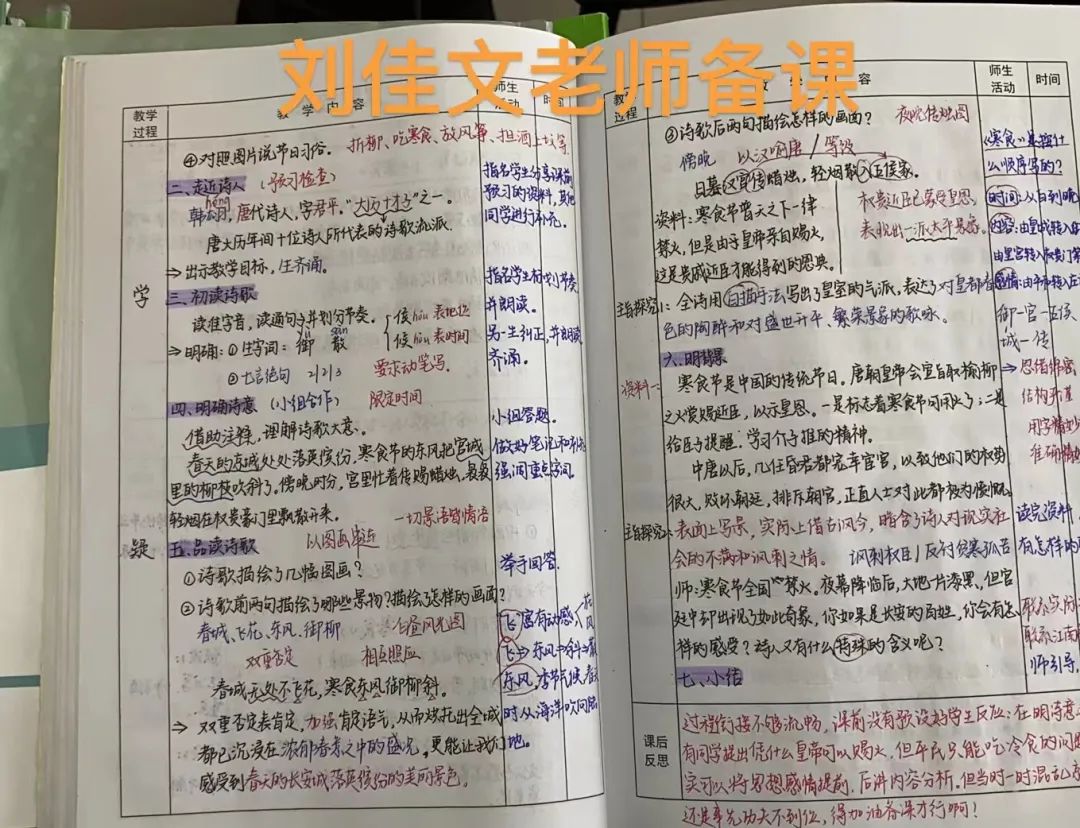 刘佳文老师备课
教学过程
教学内容
师生活动
时间
④对照图片说节日习俗。 折柳、吃寒食、放风筝、担酒上坟等
二、走近诗人 (预习检查)
hóng
韩翃,唐代诗人,字君平。"大历十才子"之一。
唐大历年间十位诗人所代表的诗歌流派.
⇒ 出示教学目标,生齐诵。
学
三、初读诗歌
读准字音,读通句子并划分节奏。
侯 hóu 表地位
候 hòu 表时间
⇒ 明确:①生字词:御 散
②七言绝句 2/2/3 要求动笔写.
四、明确诗意 (小组合作) 限定时间
借助注释,理解诗歌大意.
春天的京城处处落英缤纷,寒食节的东风把宫城
里的柳枝吹斜了。傍晚时分,宫里忙着传赐蜡烛,袅袅
轻烟在权贵豪门里飘散开来. 一切景语皆情语
疑
五、品读诗歌 以图画串连
①诗歌描绘了几幅图画?
②诗歌前两句描绘了哪些景物?描绘怎样的画面?
春城、飞花、东风、御柳 白昼风光图
双重否定 相互照应
春城无处不飞花,寒食东风御柳斜。
⇒ 双重否定表肯定,加强肯定语气,从而烘托出全城
都已沉浸在浓郁春意之中的盛况。更能让我们
感受到春天的长安城落英缤纷的美丽景色。
指名学生分享课前
预习的资料,其他
同学进行补充.
指名学生标划节奏
并朗读.
另一生纠正,并朗读
齐诵.
小组答题.
做好笔记和补充
强调重点字词.
举手回答.
飞:富有动感
飞→东风
东风:季节
时从海洋吹向陆
地。
师生活动
时间
③诗歌后两句描绘怎样的画面? 夜晚传烛图
傍晚 以汉喻唐 / 等级
日暮汉宫传蜡烛,轻烟散入五侯家.
资料:寒食节普天之下一律
禁火,但是由于皇帝亲自赐火,
这是贵戚近臣才能得到的恩典。
权贵近臣已蒙受皇恩,
表现出一派太平景庆.
主旨探究1:全诗用白描手法写出了皇室的气派,表达了对皇都春
色的陶醉和对盛世升平、繁荣景象的歌咏.
六、明背景
资料一:
寒食节是中国的传统节日。唐朝皇帝会宣旨取榆柳
之火赏赐近臣,以示皇恩。一是标志着寒食节可用火了;二是
给臣子提醒:学习介子推的精神。
中唐以后,几任昏君都宠幸宦官,以致他们的权势
很大,败坏朝廷,排斥朝官,正直人士对此都极为愤慨。
主旨探究2:表面上写景,实际上借古讽今,暗含了诗人对现实社
会的不满和讽刺之情。 讽刺权臣/反衬贫寒孤苦
师:寒食节全国禁火。夜幕降临后,大地一片漆黑,但官
廷中却出现了如此奇象,你如果是长安的百姓,你会有怎
样的感受?诗人又有什么特殊的含义呢?
七、小结
《寒食》是按什
么顺序写的?
时间:从白到晚
内容:由皇城转入
由皇宫转入权贵门第
御—官—五侯
城—传
→思绪绵密
结构严谨
用字精妙
准确精炼
读完资料,
有怎样的
联系实际
联系江南
师引导.
课后反思
过程衔接不够流畅,课前没有预设好学生反应;在明诗意
有同学提出凭什么皇帝可以赐火,但平民只能吃冷食的问
实可以将思想感情提前,后讲内容分析。但当时一时混乱
还是事先功夫不到位,得加油备课才行啊!